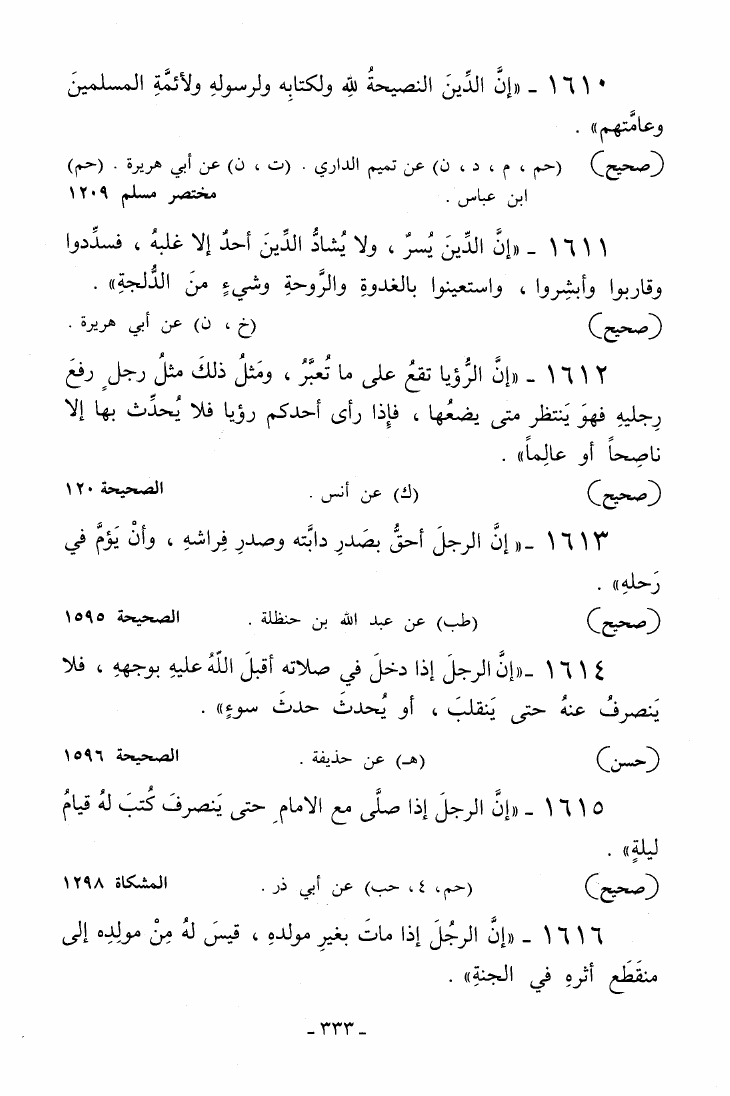 ١٦١٠ - «إنَّ الدِّينَ النصيحةُ لله ولكتابِه ولرسولهِ ولأئمَّةِ المسلمينَ
وعامَّتهم» .
(صحيح) (حم ، م ، د ، ن) عن تميم الداري . (ت ، ن) عن أبي هريرة . (حم)
ابن عباس . مختصر مسلم ١٢٠٩
١٦١١ - «إنَّ الدِّينَ يُسرٌ ، ولا يُشادُّ الدِّينَ أحدٌ إلا غلبهُ ، فسدِّدوا
وقاربوا وأبشِروا ، واستعينوا بالغدوةِ والرَّوحةِ وشيءٍ منَ الدُّلجةِ» .
(صحيح) (خ ، ن) عن أبي هريرة .
١٦١٢ - «إنَّ الرُّؤيا تقعُ على ما تُعبَّرُ ، ومَثلُ ذلكَ مثلُ رجلٍ رفعَ
رِجليهِ فهوَ يَنتظر متى يضعُها ، فإذا رأى أحدكم رؤيا فلا يُحدِّث بها إلا
ناصِحاً أو عالِماً» .
(صحيح) (ك) عن أنس . الصحيحة ١٢٠
١٦١٣ - «إنَّ الرجلَ أحقُّ بصَدرِ دابَّته وصدرِ فِراشهِ ، وأنْ يَؤمَّ في
رَحلهِ» .
(صحيح) (طب) عن عبد الله بن حنظلة . الصحيحة ١٥٩٥
١٦١٤ - «إنَّ الرجلَ إذا دخلَ في صلاته أقبلَ اللّهُ عليهِ بوجههِ ، فلا
يَنصرفُ عنهُ حتى يَنقلبَ ، أو يُحدثَ حدثَ سوءٍ» .
(حسن) (هـ) عن حذيفة . الصحيحة ١٥٩٦
١٦١٥ - «إنَّ الرجلَ إذا صلَّى مع الامامِ حتى يَنصرفَ كُتبَ لهُ قيامُ
ليلةٍ» .
(صحيح) (حم، ٤ ، حب) عن أبي ذر . المشكاة ١٢٩٨
١٦١٦ - «إنَّ الرجُلَ إذا ماتَ بغيرِ مولدهِ ، قيسَ لهُ مِنْ مولِدِه إلى
منقَطَع أثرهِ في الجنةِ» .
- ٣٣٣ -